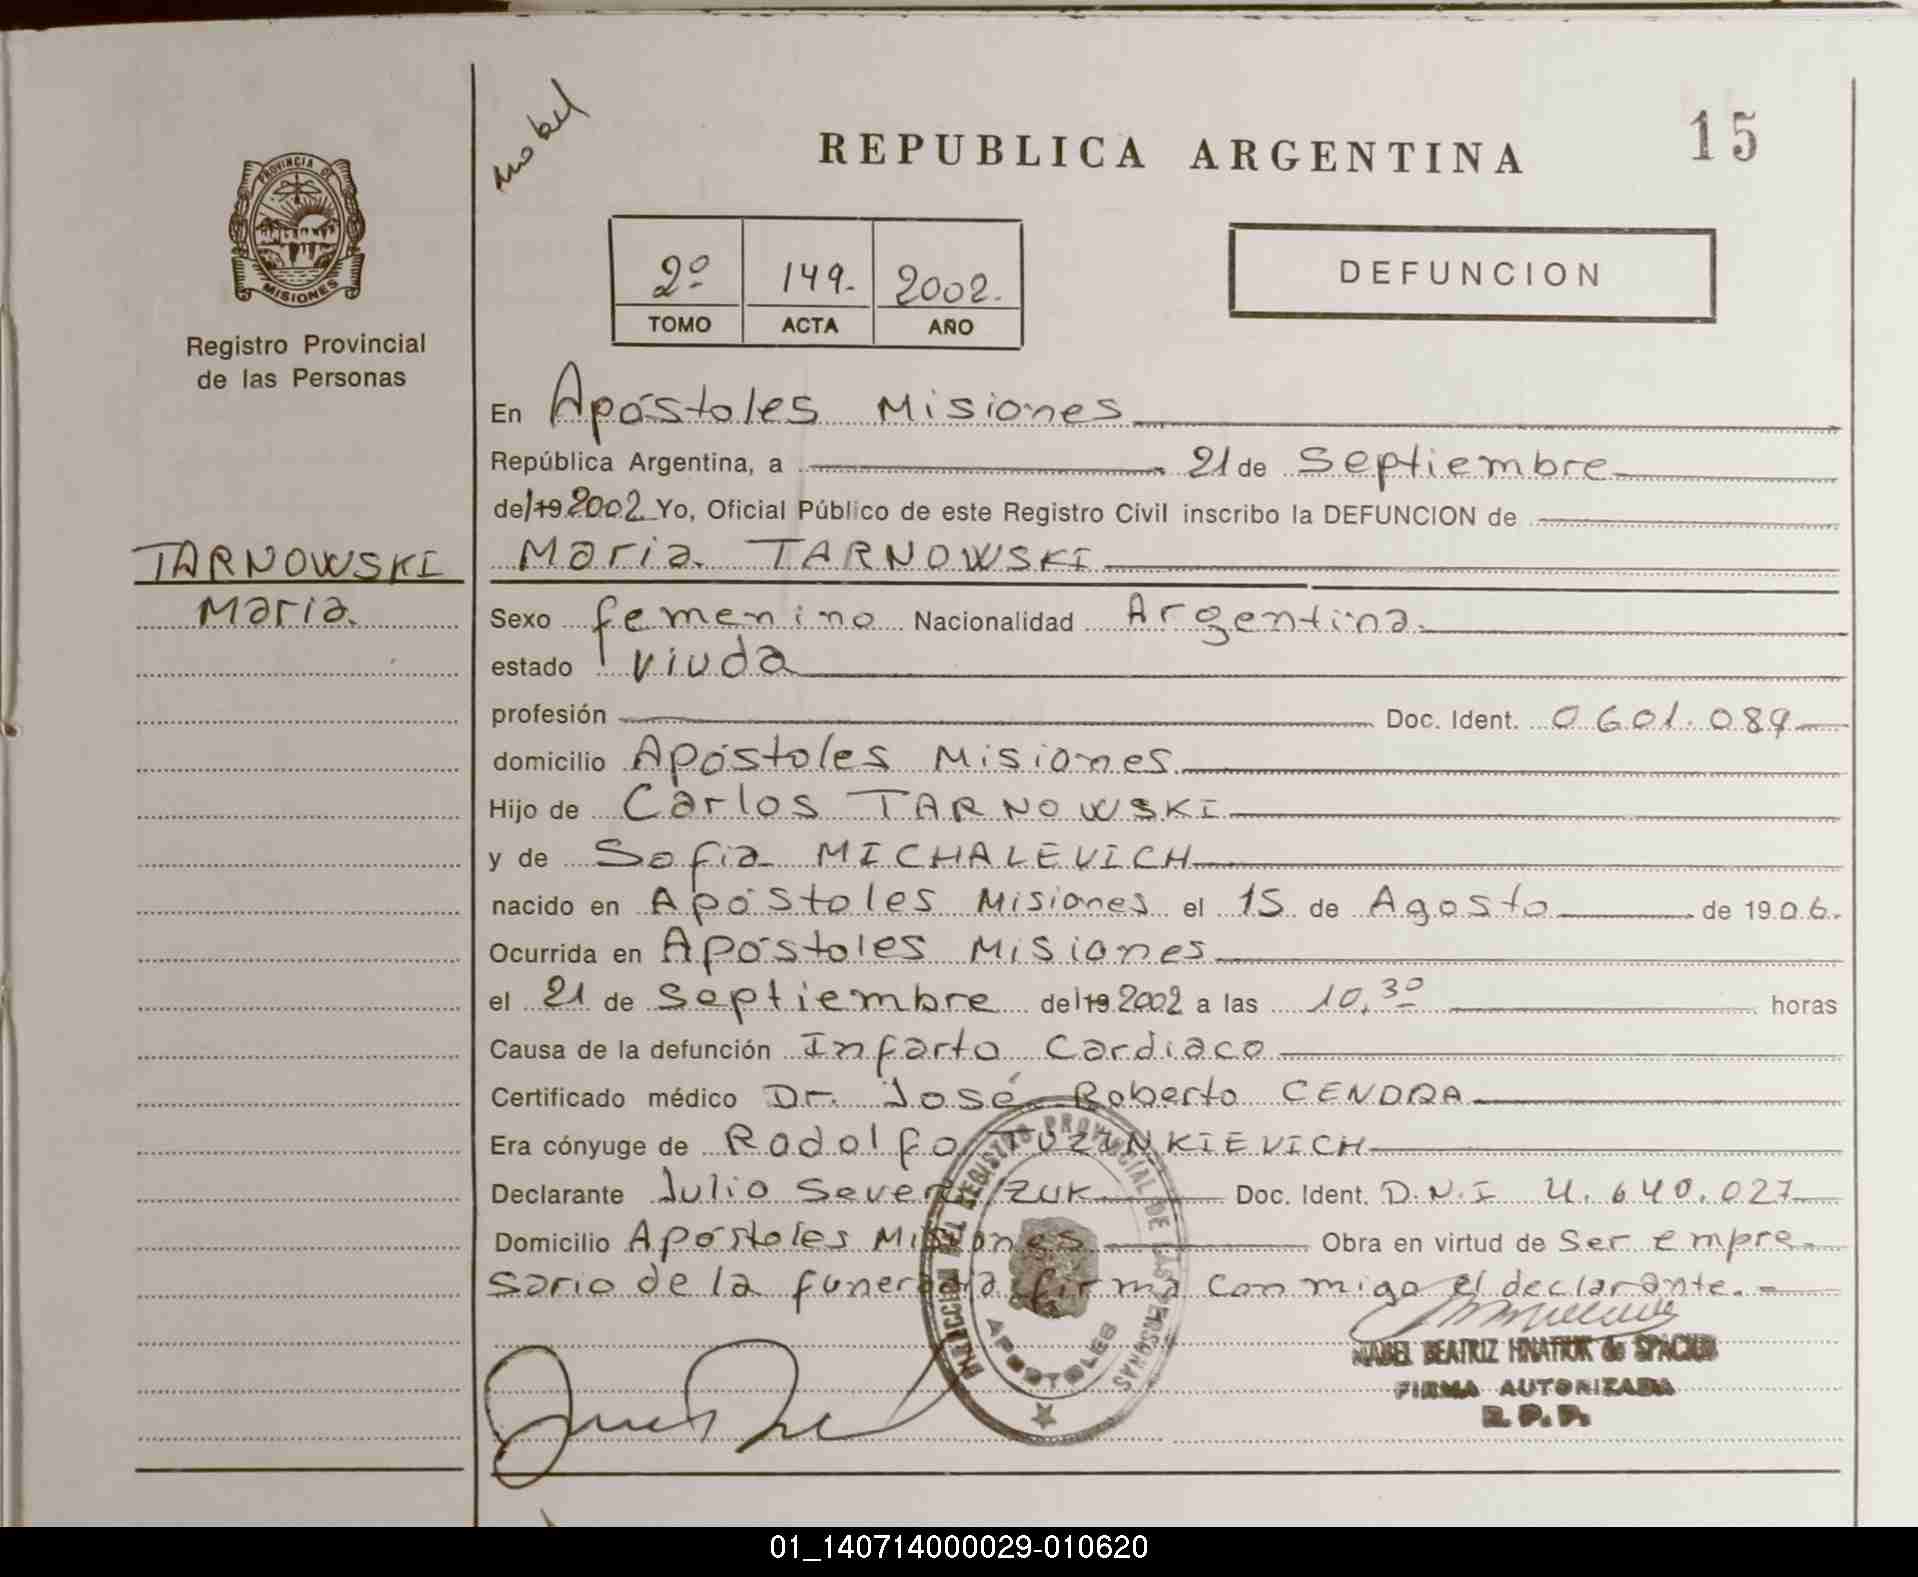 mabel
REPUBLICA ARGENTINA
15
PROVINCIA DE
MISIONES
Registro Provincial
de las Personas
2º 149. 2002.
TOMO ACTA AÑO
DEFUNCION
En Apóstoles Misiones
República Argentina, a 21 de Septiembre
del 19 2002 Yo, Oficial Público de este Registro Civil inscribo la DEFUNCION de
TARNOWSKI
Maria.
Maria TARNOWSKI
Sexo femenino Nacionalidad Argentina.
estado viuda
profesión Doc. Ident. 0601.089
domicilio Apóstoles Misiones
Hijo de Carlos TARNOWSKI
y de Sofia MICHALEVICH
nacido en Apóstoles Misiones el 15 de Agosto de 1906.
Ocurrida en Apóstoles Misiones
el 21 de Septiembre del 19 2002 a las 10,30 horas
Causa de la defunción Infarto Cardiaco
Certificado médico Dr. José Roberto CENDRA
Era cónyuge de Rodolfo TUZINKIEVICH
Declarante Julio Severo ZUK Doc. Ident. D.N.I 4.640.027
Domicilio Apóstoles Misiones Obra en virtud de Ser empre
sario de la funeraria, firma conmigo el declarante. -
DIRECCION DEL REGISTRO PROVINCIAL DE LAS PERSONAS
APOSTOLES
MABEL BEATRIZ HNATIUK de
FIRMA AUTORIZADA
R. P. P.
01_140714000029-010620